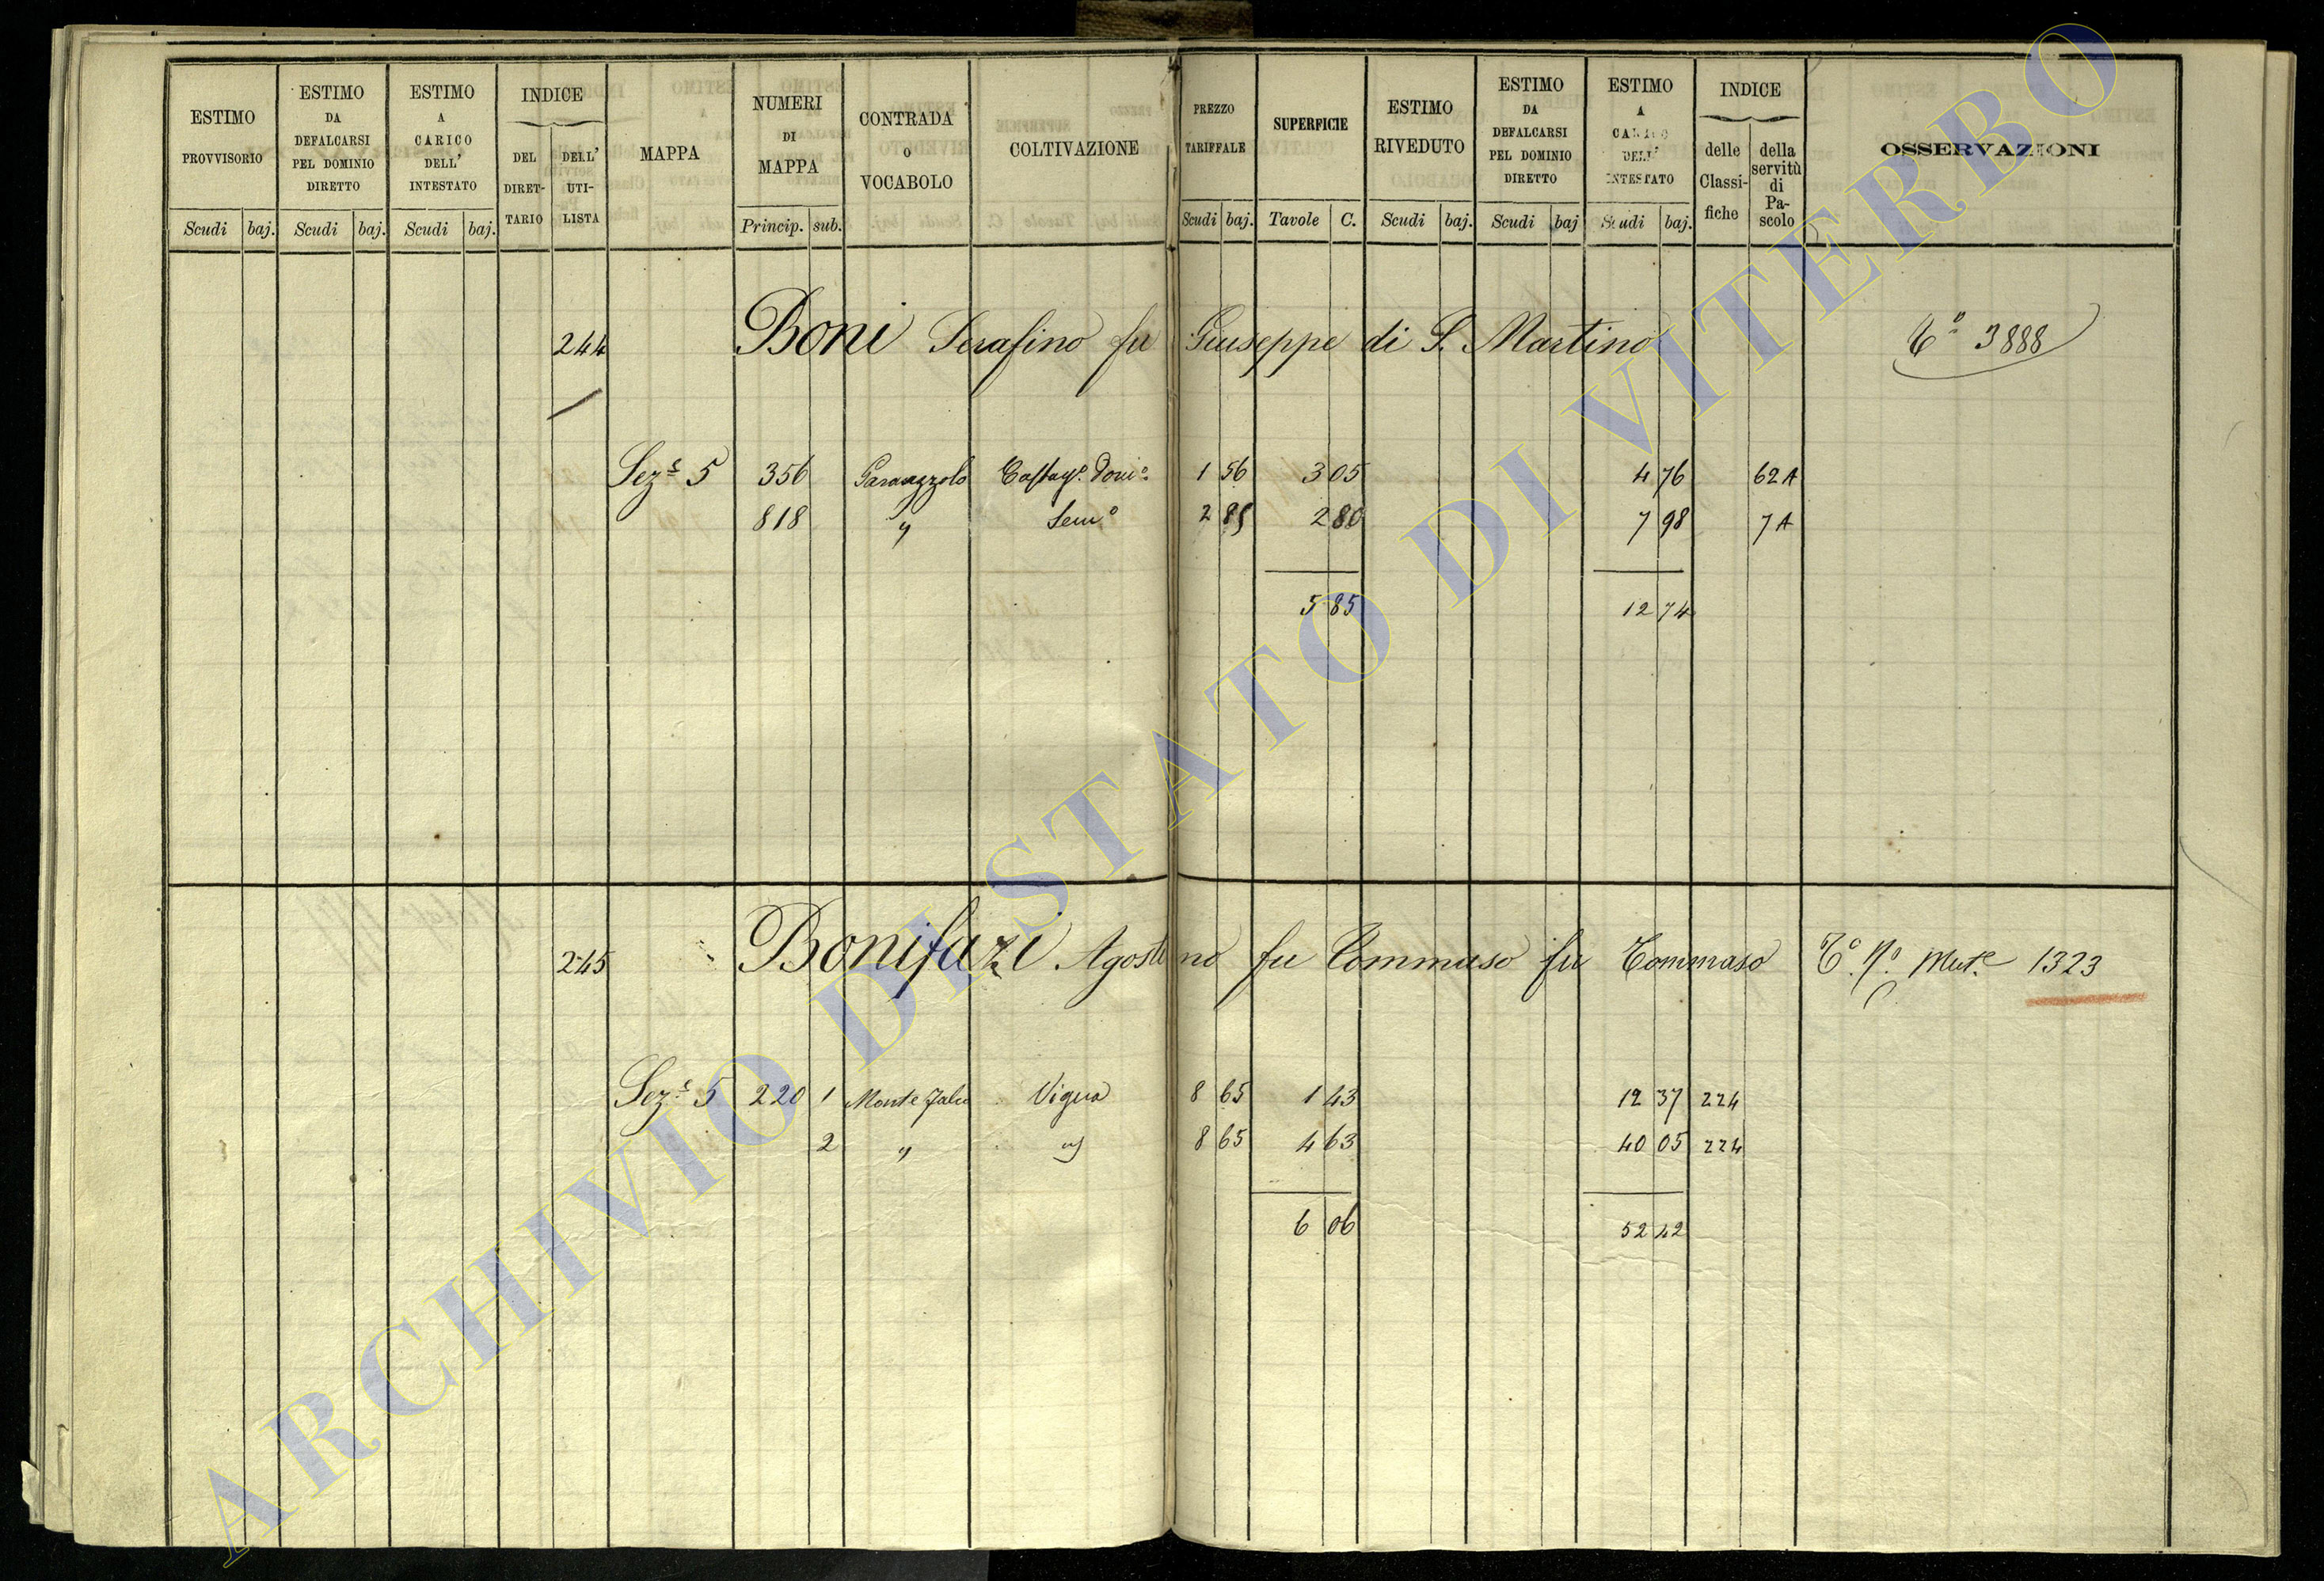 ESTIMO PROVVISORIO Scudi baj.
ESTIMO DA DEFALCARSI PEL DOMINIO DIRETTO Scudi baj.
ESTIMO A CARICO DELL' INTESTATO Scudi baj.
INDICE DEL DIRETTARIO DELL' UTILISTA
MAPPA
NUMERI DI MAPPA Princip. sub.
CONTRADA O VOCABOLO
COLTIVAZIONE
PREZZO TARIFFALE Scudi baj.
SUPERFICIE Tavole C.
ESTIMO RIVEDUTO Scudi baj.
ESTIMO DA DEFALCARSI PEL DOMINIO DIRETTO Scudi baj
ESTIMO A CARICO DELL' INTESTATO Scudi baj.
INDICE delle Classifiche della servitù di Pascolo
OSSERVAZIONI
244 Boni Serafino fu Giuseppe di S. Martino Cº 3888
Sezᵉ 5 356 1 56 3 05 4 76 62 A
818 " Semº 2 85 2 80 7 98 7 A
5 85 12 74
245 Bonifazi Agostino fu Tommaso fu Tommaso Cº Nº Mutᵉ 1323
Sezᵉ 5 220 1 Monte Vigna 8 65 1 43 12 37 224
2 " " 8 65 4 63 40 05 224
6 06 52 42
ARCHIVIO DI STATO DI VITERBO